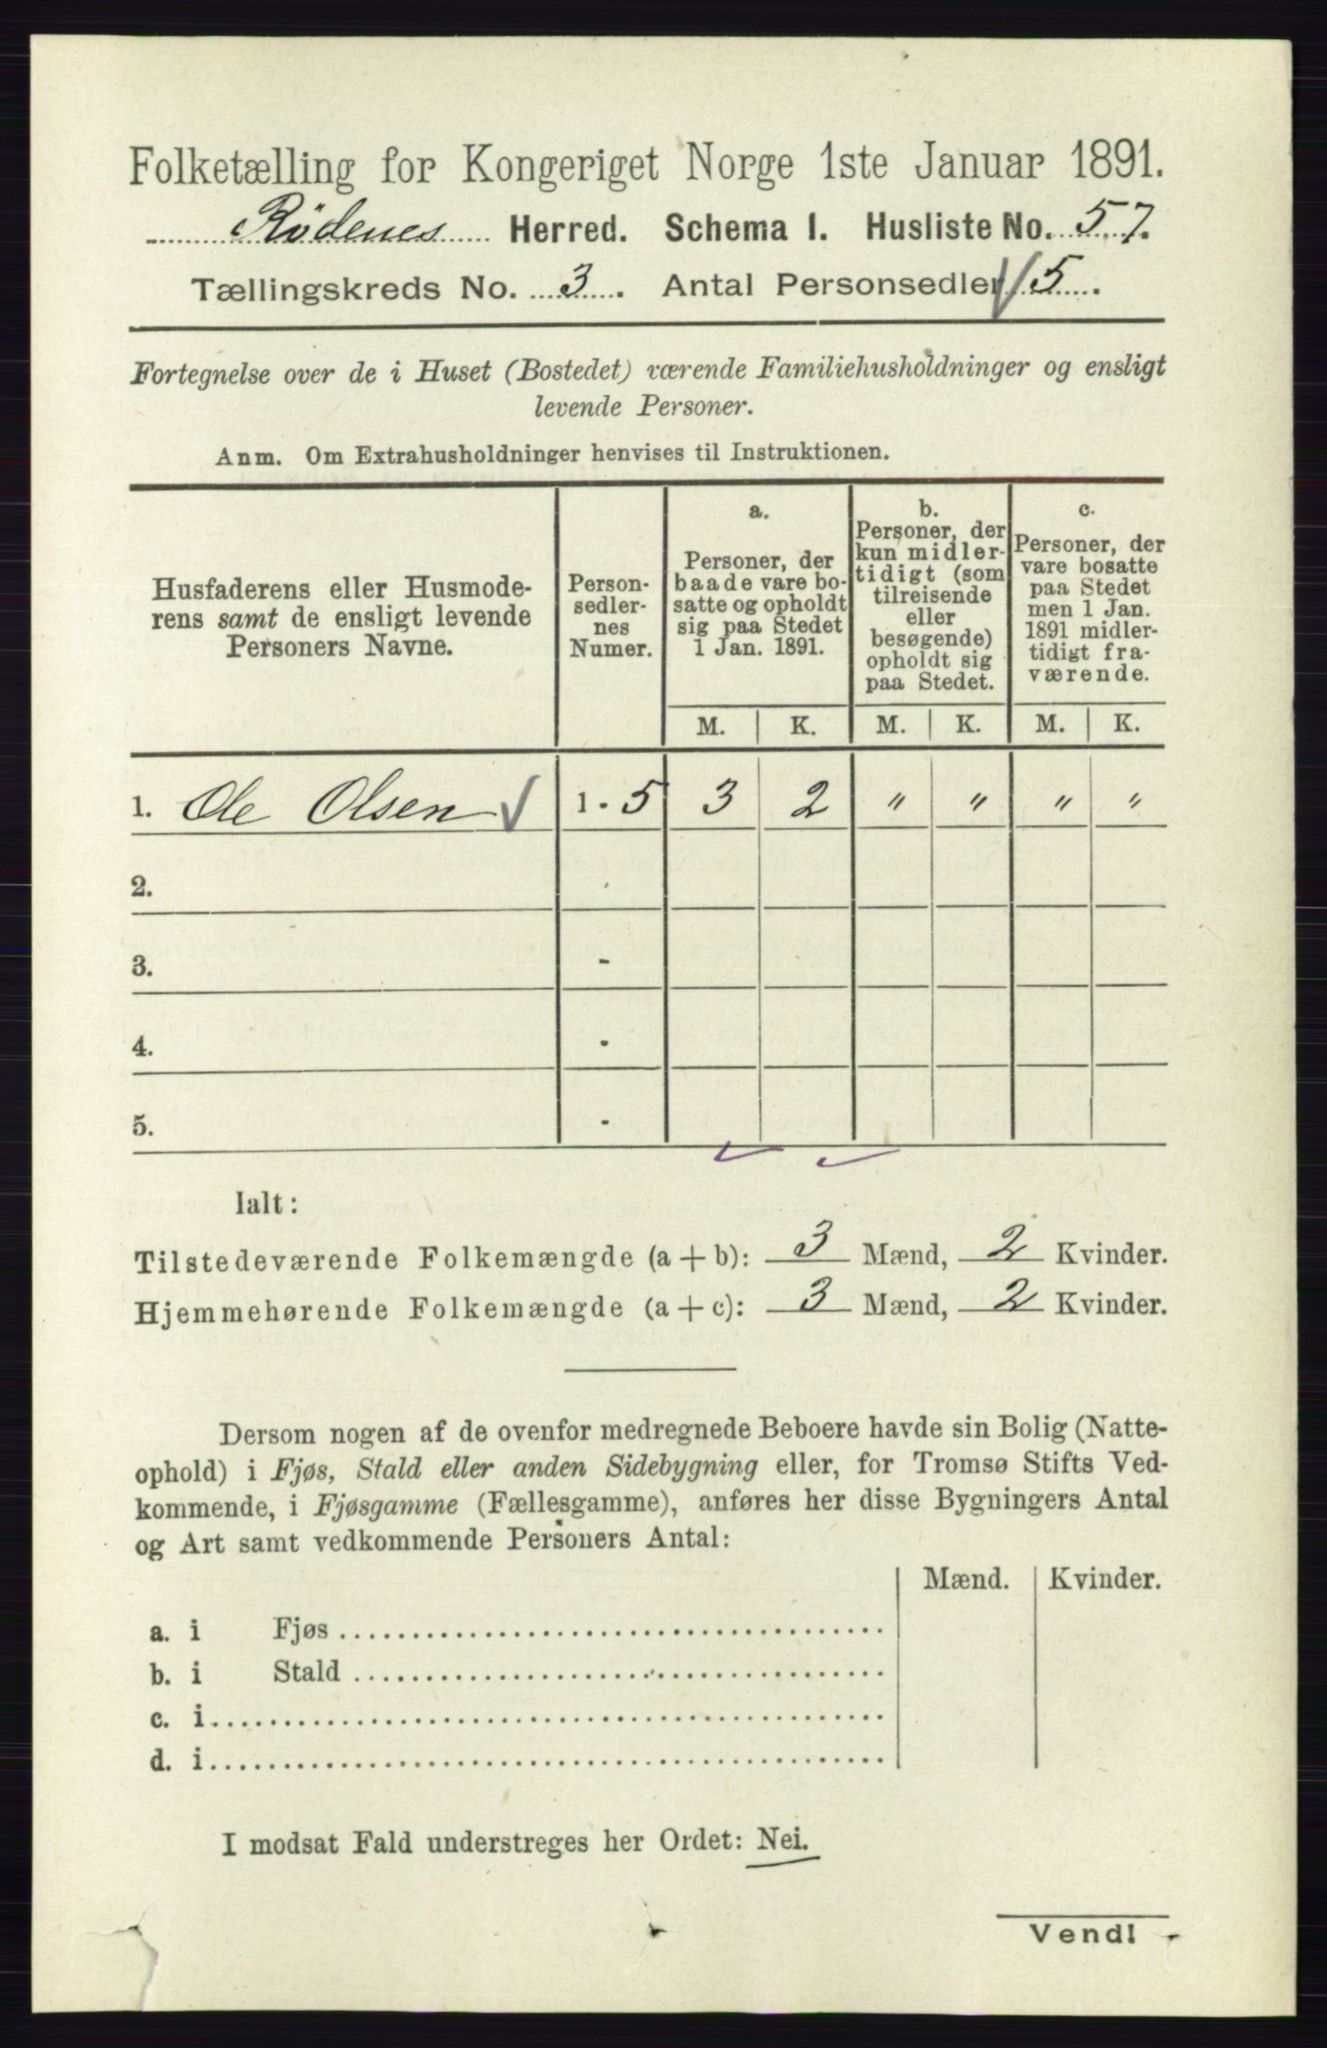 Folketælling for Kongeriget Norge 1ste Januar 1891.
Rödenes Herred. Schema I. Husliste No. 57.
Tællingskreds No. 3. Antal Personsedler 5.
Fortegnelse over de i Huset (Bostedet) værende Familiehusholdninger og ensligt
levende Personer.
Anm. Om Extrahusholdninger henvises til Instruktionen.
Husfaderens eller Husmode-
rens samt de ensligt levende
Personers Navne.
Person-
sedler-
nes
Numer.
a.
Personer, der
baade vare bo-
satte og opholdt
sig paa Stedet
1 Jan. 1891.
b.
Personer, der
kun midler-
tidigt (som
tilreisende
eller
besøgende)
opholdt sig
paa Stedet.
c.
Personer, der
vare bosatte
paa Stedet
men 1 Jan.
1891 midler-
tidigt fra-
værende.
M. K. M. K. M. K.
1. Ole Olsen 1 - 5 3 2 " " " "
2. -
3. -
4. -
5. -
Ialt:
Tilstedeværende Folkemængde (a + b): 3 Mænd, 2 Kvinder.
Hjemmehørende Folkemængde (a + c): 3 Mænd, 2 Kvinder.
Dersom nogen af de ovenfor medregnede Beboere havde sin Bolig (Natte-
ophold) i Fjøs, Stald eller anden Sidebygning eller, for Tromsø Stifts Ved-
kommende, i Fjøsgamme (Fællesgamme), anføres her disse Bygningers Antal
og Art samt vedkommende Personers Antal:
Mænd. Kvinder.
a. i Fjøs
b. i Stald
c. i
d. i
I modsat Fald understreges her Ordet: Nei.
Vend!